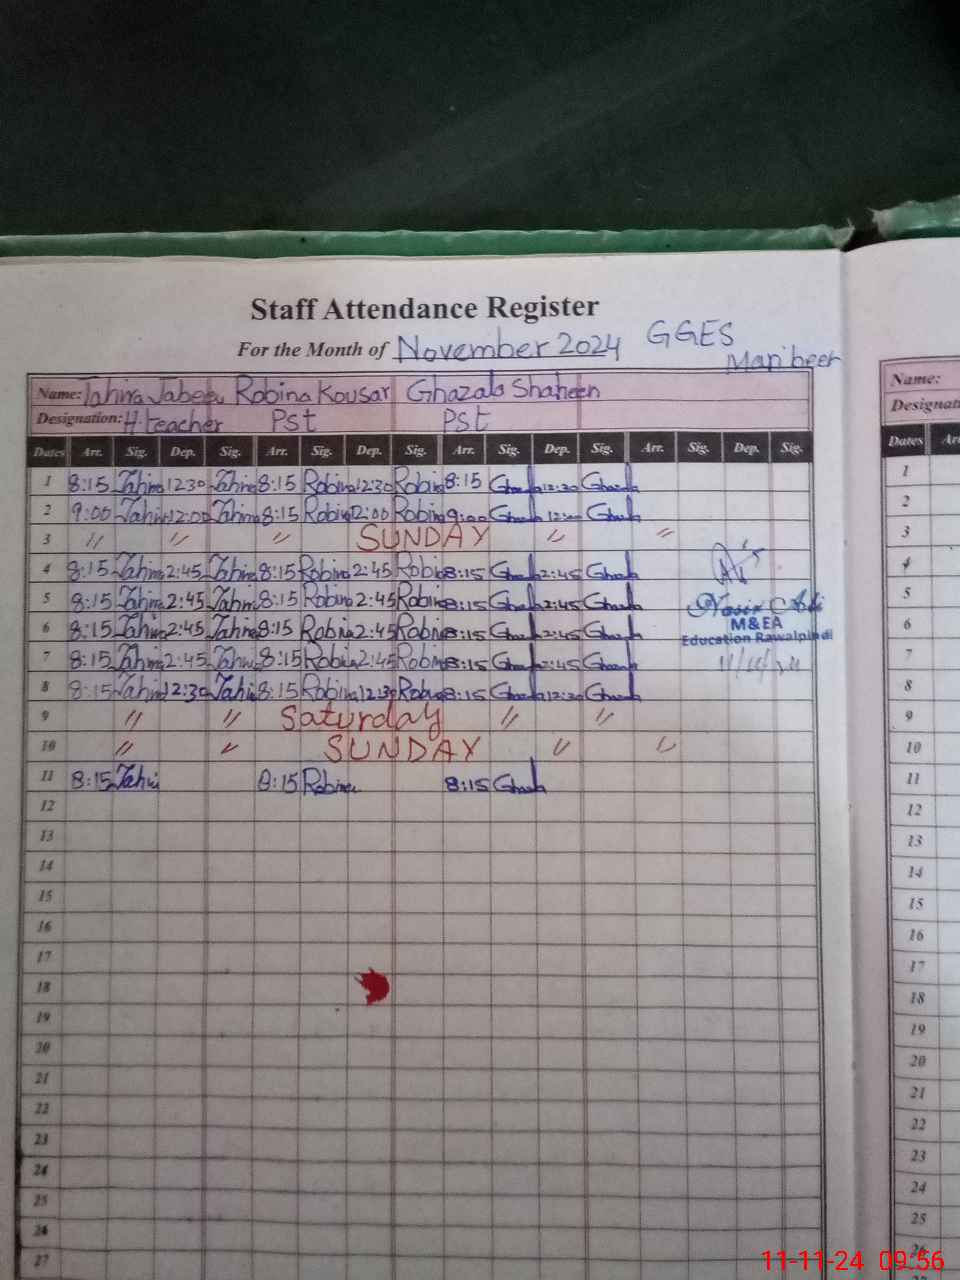 Staff Attendance Register
For the Month of November 2024 GGES
Name: Tahira Jabeen Robina Kousar Ghazala Shaheen
Designation: H.teacher Pst Pst
Dates Arr. Sig. Dep. Sig. Arr. Sig. Dep. Sig. Arr. Sig. Dep. Sig. Arr. Sig. Dep. Sig.
1 8:15 Tahira 12:30 Tahira 8:15 Robina 12:30 Robina 8:15 Ghazala 12:30 Ghazala
2 9:00 Tahira 12:00 Tahira 8:15 Robina 12:00 Robina 9:00 Ghazala 12:00 Ghazala
3 〃 〃 〃 SUNDAY 〃 〃
4 8:15 Tahira 2:45 Tahira 8:15 Robina 2:45 Robina 8:15 Ghazala 2:45 Ghazala
5 8:15 Tahira 2:45 Tahira 8:15 Robina 2:45 Robina 8:15 Ghazala 2:45 Ghazala
Nasir Ali
6 8:15 Tahira 2:45 Tahira 8:15 Robina 2:45 Robina 8:15 Ghazala 2:45 Ghazala
M&EA
Education Rawalpindi
7 8:15 Tahira 2:45 Tahira 8:15 Robina 2:45 Robina 8:15 Ghazala 2:45 Ghazala
11/11/24
8 8:15 Tahira 12:30 Tahira 8:15 Robina 12:30 Robina 8:15 Ghazala 12:30 Ghazala
9 〃 〃 Saturday 〃 〃
10 〃 〃 SUNDAY 〃 〃
11 8:15 Tahira 8:15 Robina 8:15 Ghazala
12
13
14
15
16
17
18
19
20
21
22
23
24
25
26
27
Name:
Designat
Dates Ar
1
2
3
4
5
6
7
8
9
10
11
12
13
14
15
16
17
18
19
20
21
22
23
24
25
26
11-11-24 09:56